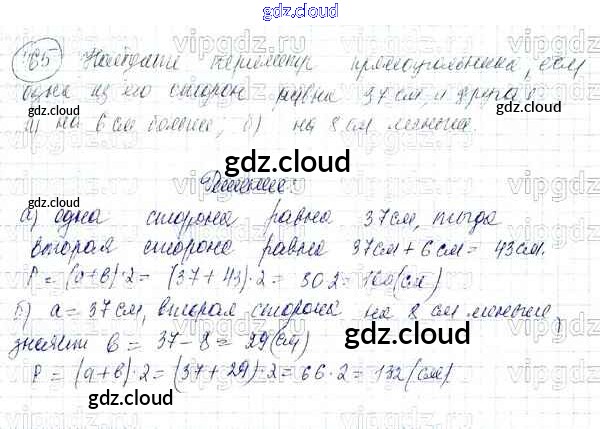 gdz.cloud
765 Найдите периметр прямоугольника, если
одна из его сторон равна 37см, а другая
а) на 6 см больше; б) на 8 см меньше.
gdz.cloud
Решение:
а) одна сторона равна 37см, тогда
вторая сторона равна 37см+6см= 43см.
P = (a+b)·2= (37+43)·2= 80·2=160(см)
б) a= 37см, вторая сторона на 8 см меньше,
значит b= 37-8=29(см)
P = (a+b)·2=(37+29)·2=66·2=132(см)
gdz.cloud